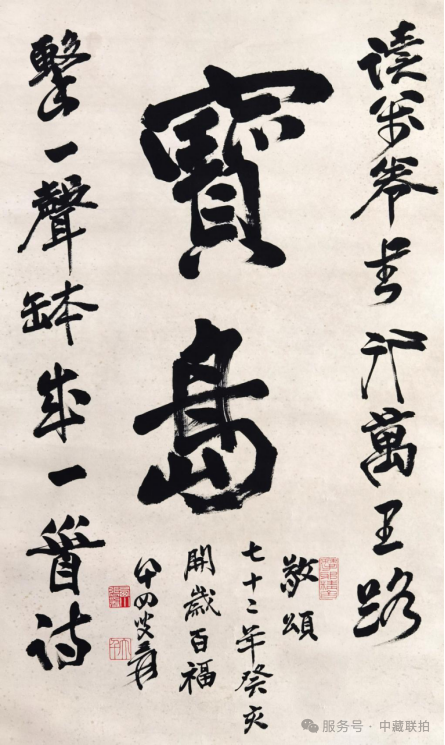 讀萬卷書行萬里路
寶島
擊一聲缽成一首詩
敬頌
七十二年癸亥
開歲百福
八十四叟爰
服务号 · 中藏联拍